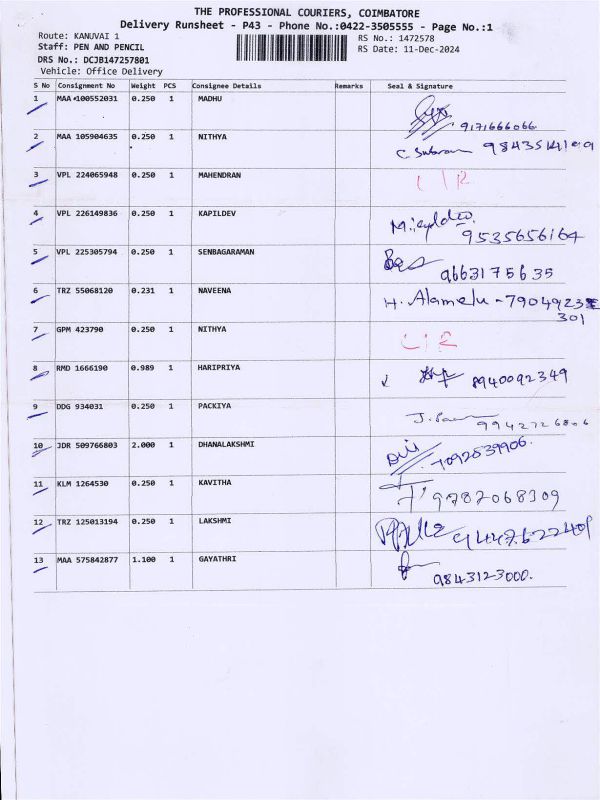 THE PROFESSIONAL COURIERS, COIMBATORE
Delivery Runsheet - P43 - Phone No.:0422-3505555 - Page No.:1
Route: KANUVAI 1
RS No.: 1472578
Staff: PEN AND PENCIL
RS Date: 11-Dec-2024
DRS No.: DCJB147257801
Vehicle: Office Delivery
S No Consignment No Weight PCS Consignee Details Remarks Seal & Signature
1 MAA 100552031 0.250 1 MADHU 9171666066
2 MAA 105904635 0.250 1 NITHYA
3 VPL 224065948 0.250 1 MAHENDRAN
4 VPL 226149836 0.250 1 KAPILDEV 9535656164
5 VPL 225305794 0.250 1 SENBAGARAMAN 9663175635
6 TRZ 55068120 0.231 1 NAVEENA H. Alamelu - 7904923
301
7 GPM 423790 0.250 1 NITHYA
8 RMD 1666190 0.989 1 HARIPRIYA 8940092349
9 DDG 934031 0.250 1 PACKIYA
10 JDR 509766803 2.000 1 DHANALAKSHMI 7092539906.
11 KLM 1264530 0.250 1 KAVITHA 9787068309
12 TRZ 125013194 0.250 1 LAKSHMI
13 MAA 575842877 1.100 1 GAYATHRI 9843123000.